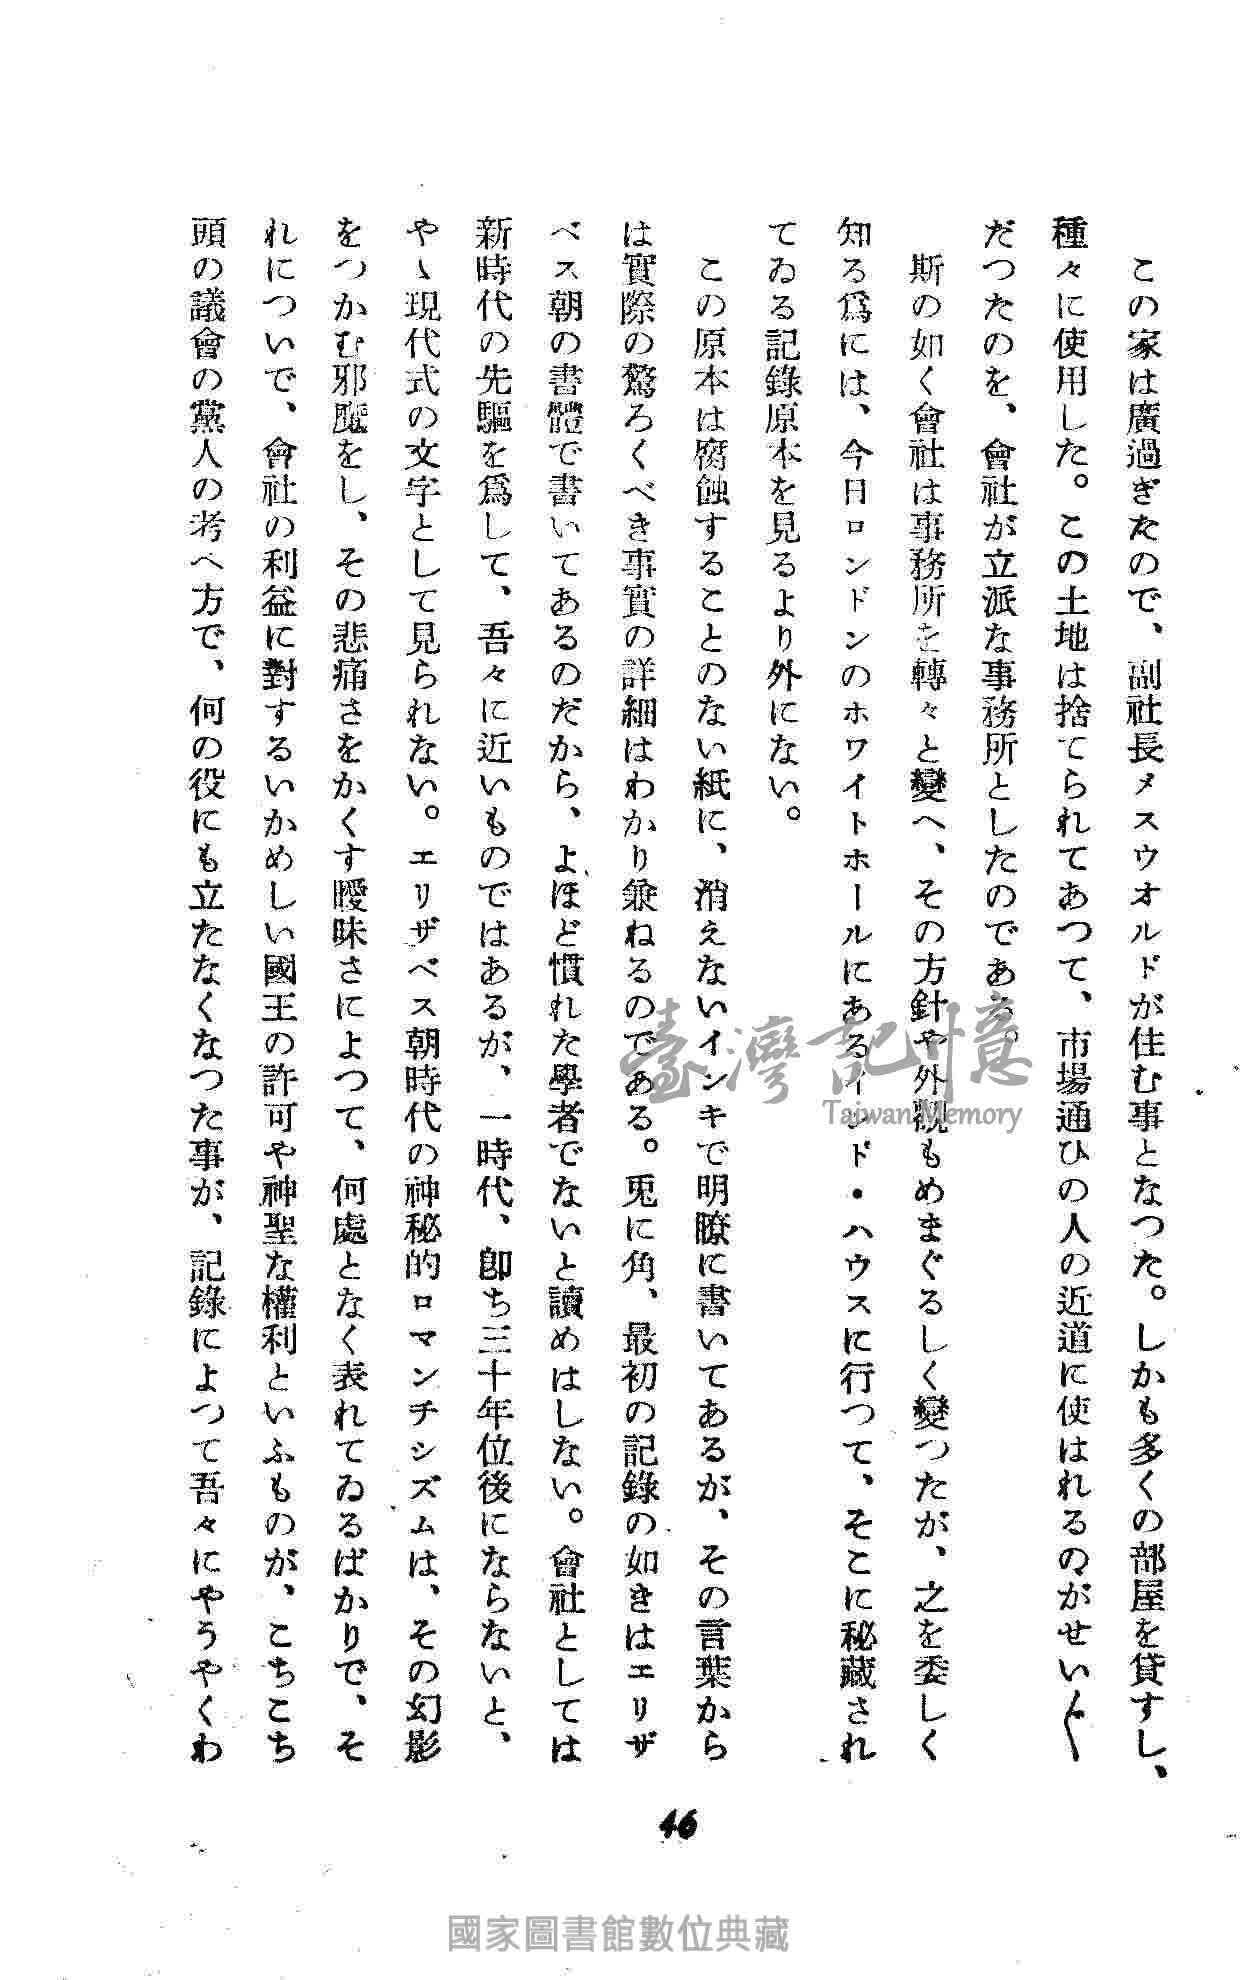 この家は廣過ぎたので、副社長メスウオルドが住む事となつた。しかも多くの部屋を貸すし、
種々に使用した。この土地は捨てられてあつて、市場通ひの人の近道に使はれるのがせい〲
だつたのを、會社が立派な事務所としたのである。
斯の如く會社は事務所を轉々と變へ、その方針や外觀もめまぐるしく變つたが、之を委しく
知る爲には、今日ロンドンのホワイトホールにあるインド・ハウスに行つて、そこに秘藏され
てゐる記錄原本を見るより外にない。
この原本は腐蝕することのない紙に、消えないインキで明瞭に書いてあるが、その言葉から
は實際の驚ろくべき事實の詳細はわかり兼ねるのである。兎に角、最初の記錄の如きはエリザ
ベス朝の書體で書いてあるのだから、よほど慣れた學者でないと讀めはしない。會社としては
新時代の先驅を爲して、吾々に近いものではあるが、一時代、卽ち三十年位後にならないと、
やゝ現代式の文字として見られない。エリザベス朝時代の神秘的ロマンチシズムは、その幻影
をつかむ邪魔をし、その悲痛さをかくす曖昧さによつて、何處となく表れてゐるばかりで、そ
れについで、會社の利益に對するいかめしい國王の許可や神聖な權利といふものが、こちこち
頭の議會の黨人の考へ方で、何の役にも立たなくなつた事が、記錄によつて吾々にやうやくわ
46
臺灣記憶
Taiwan Memory
國家圖書館數位典藏